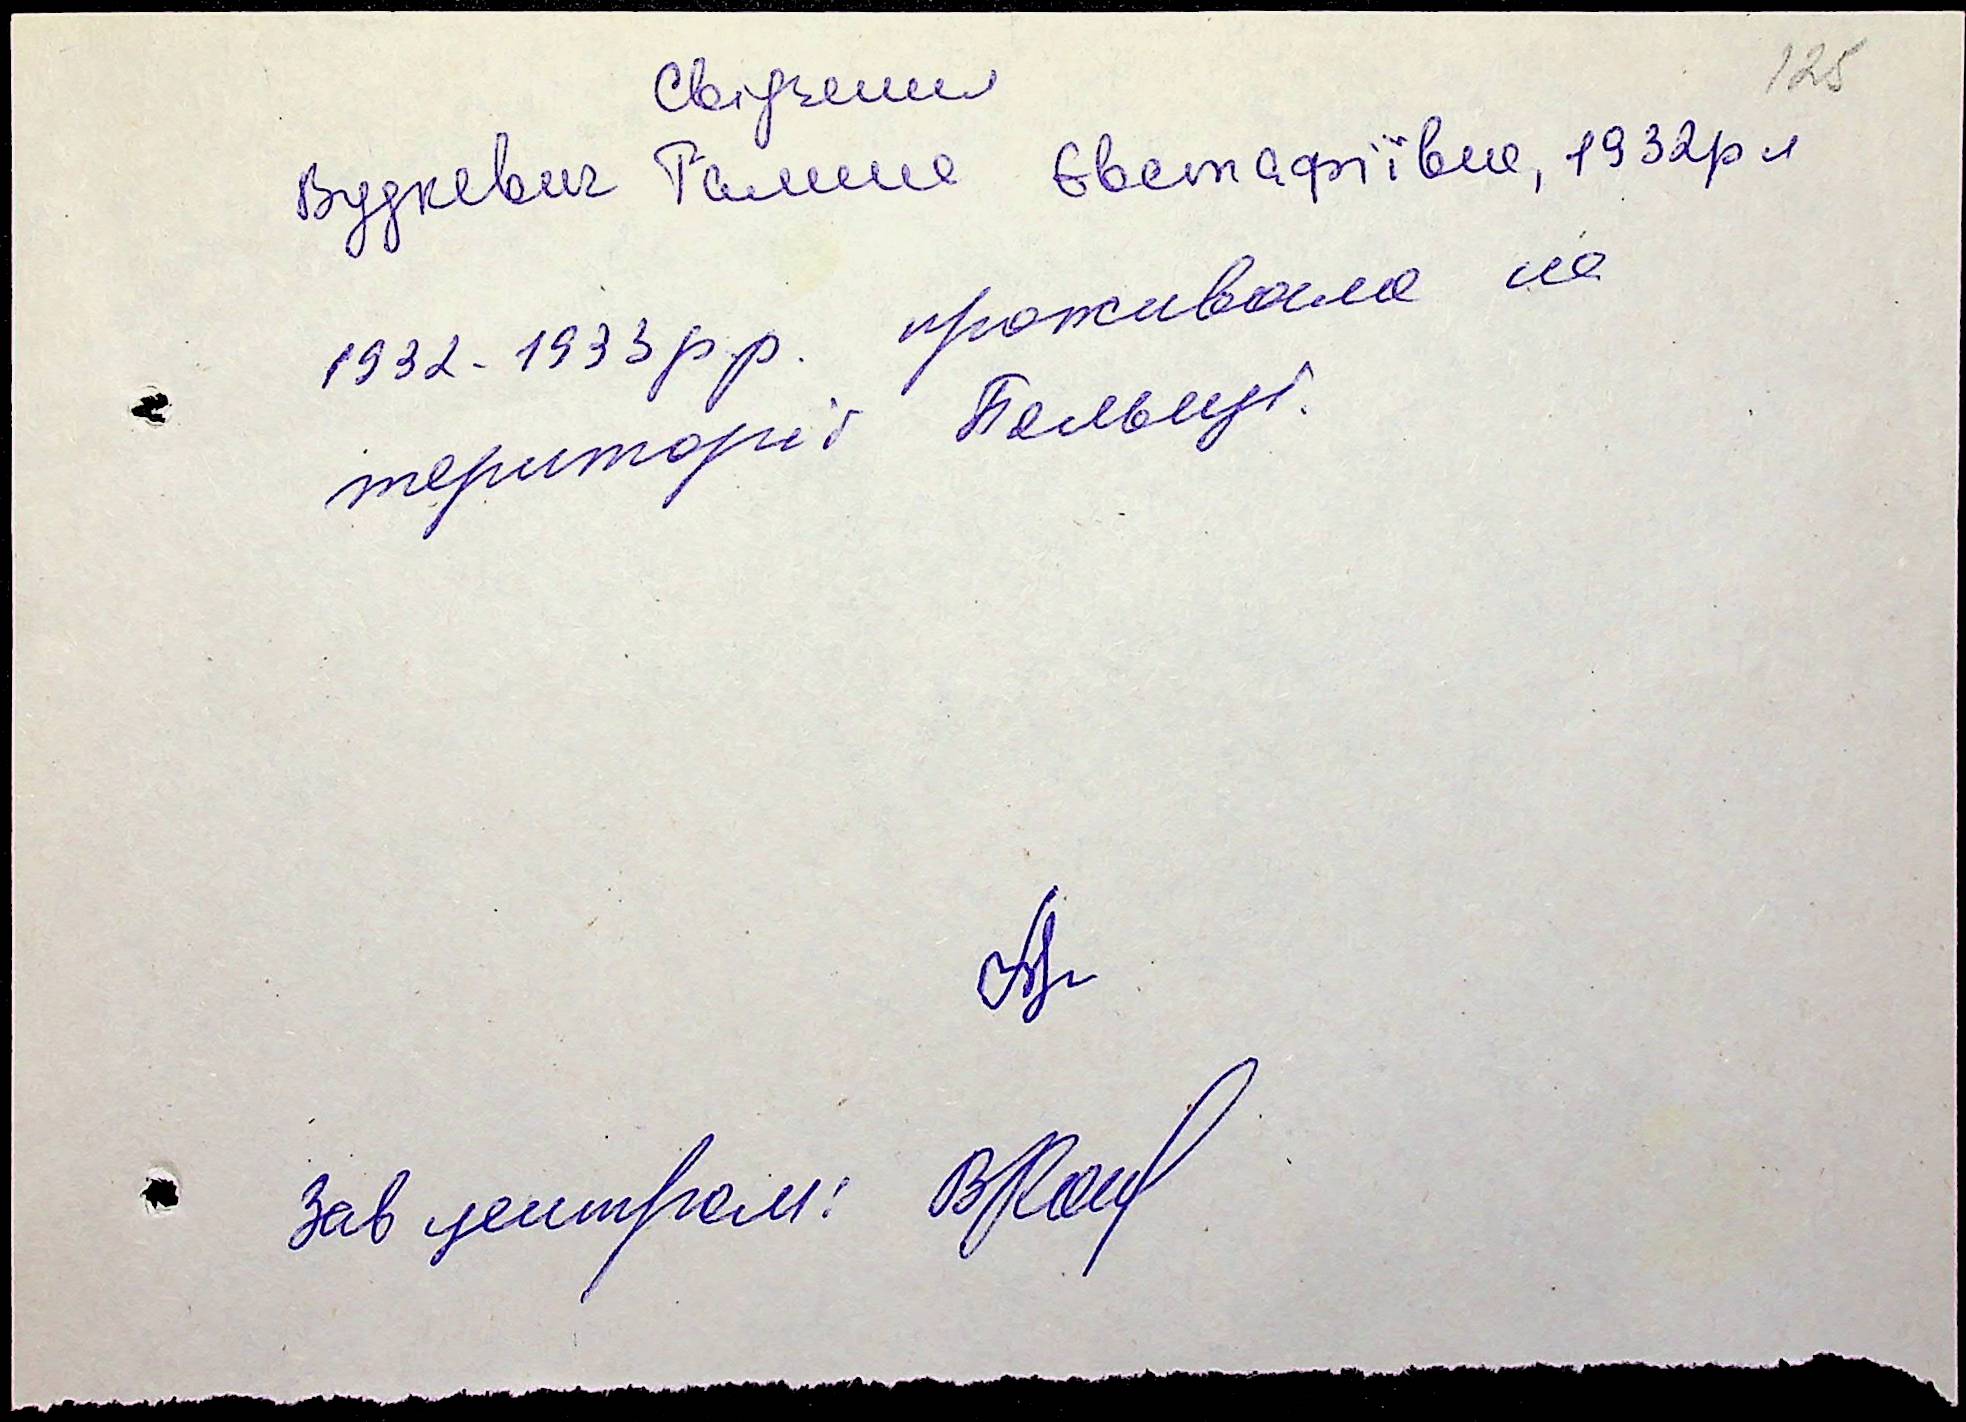 125
Свідчення
Вудкевич Галина Євстафіївна, 1932р н
1932-1933р.р. проживала на
території Польщі.
Зав центром: